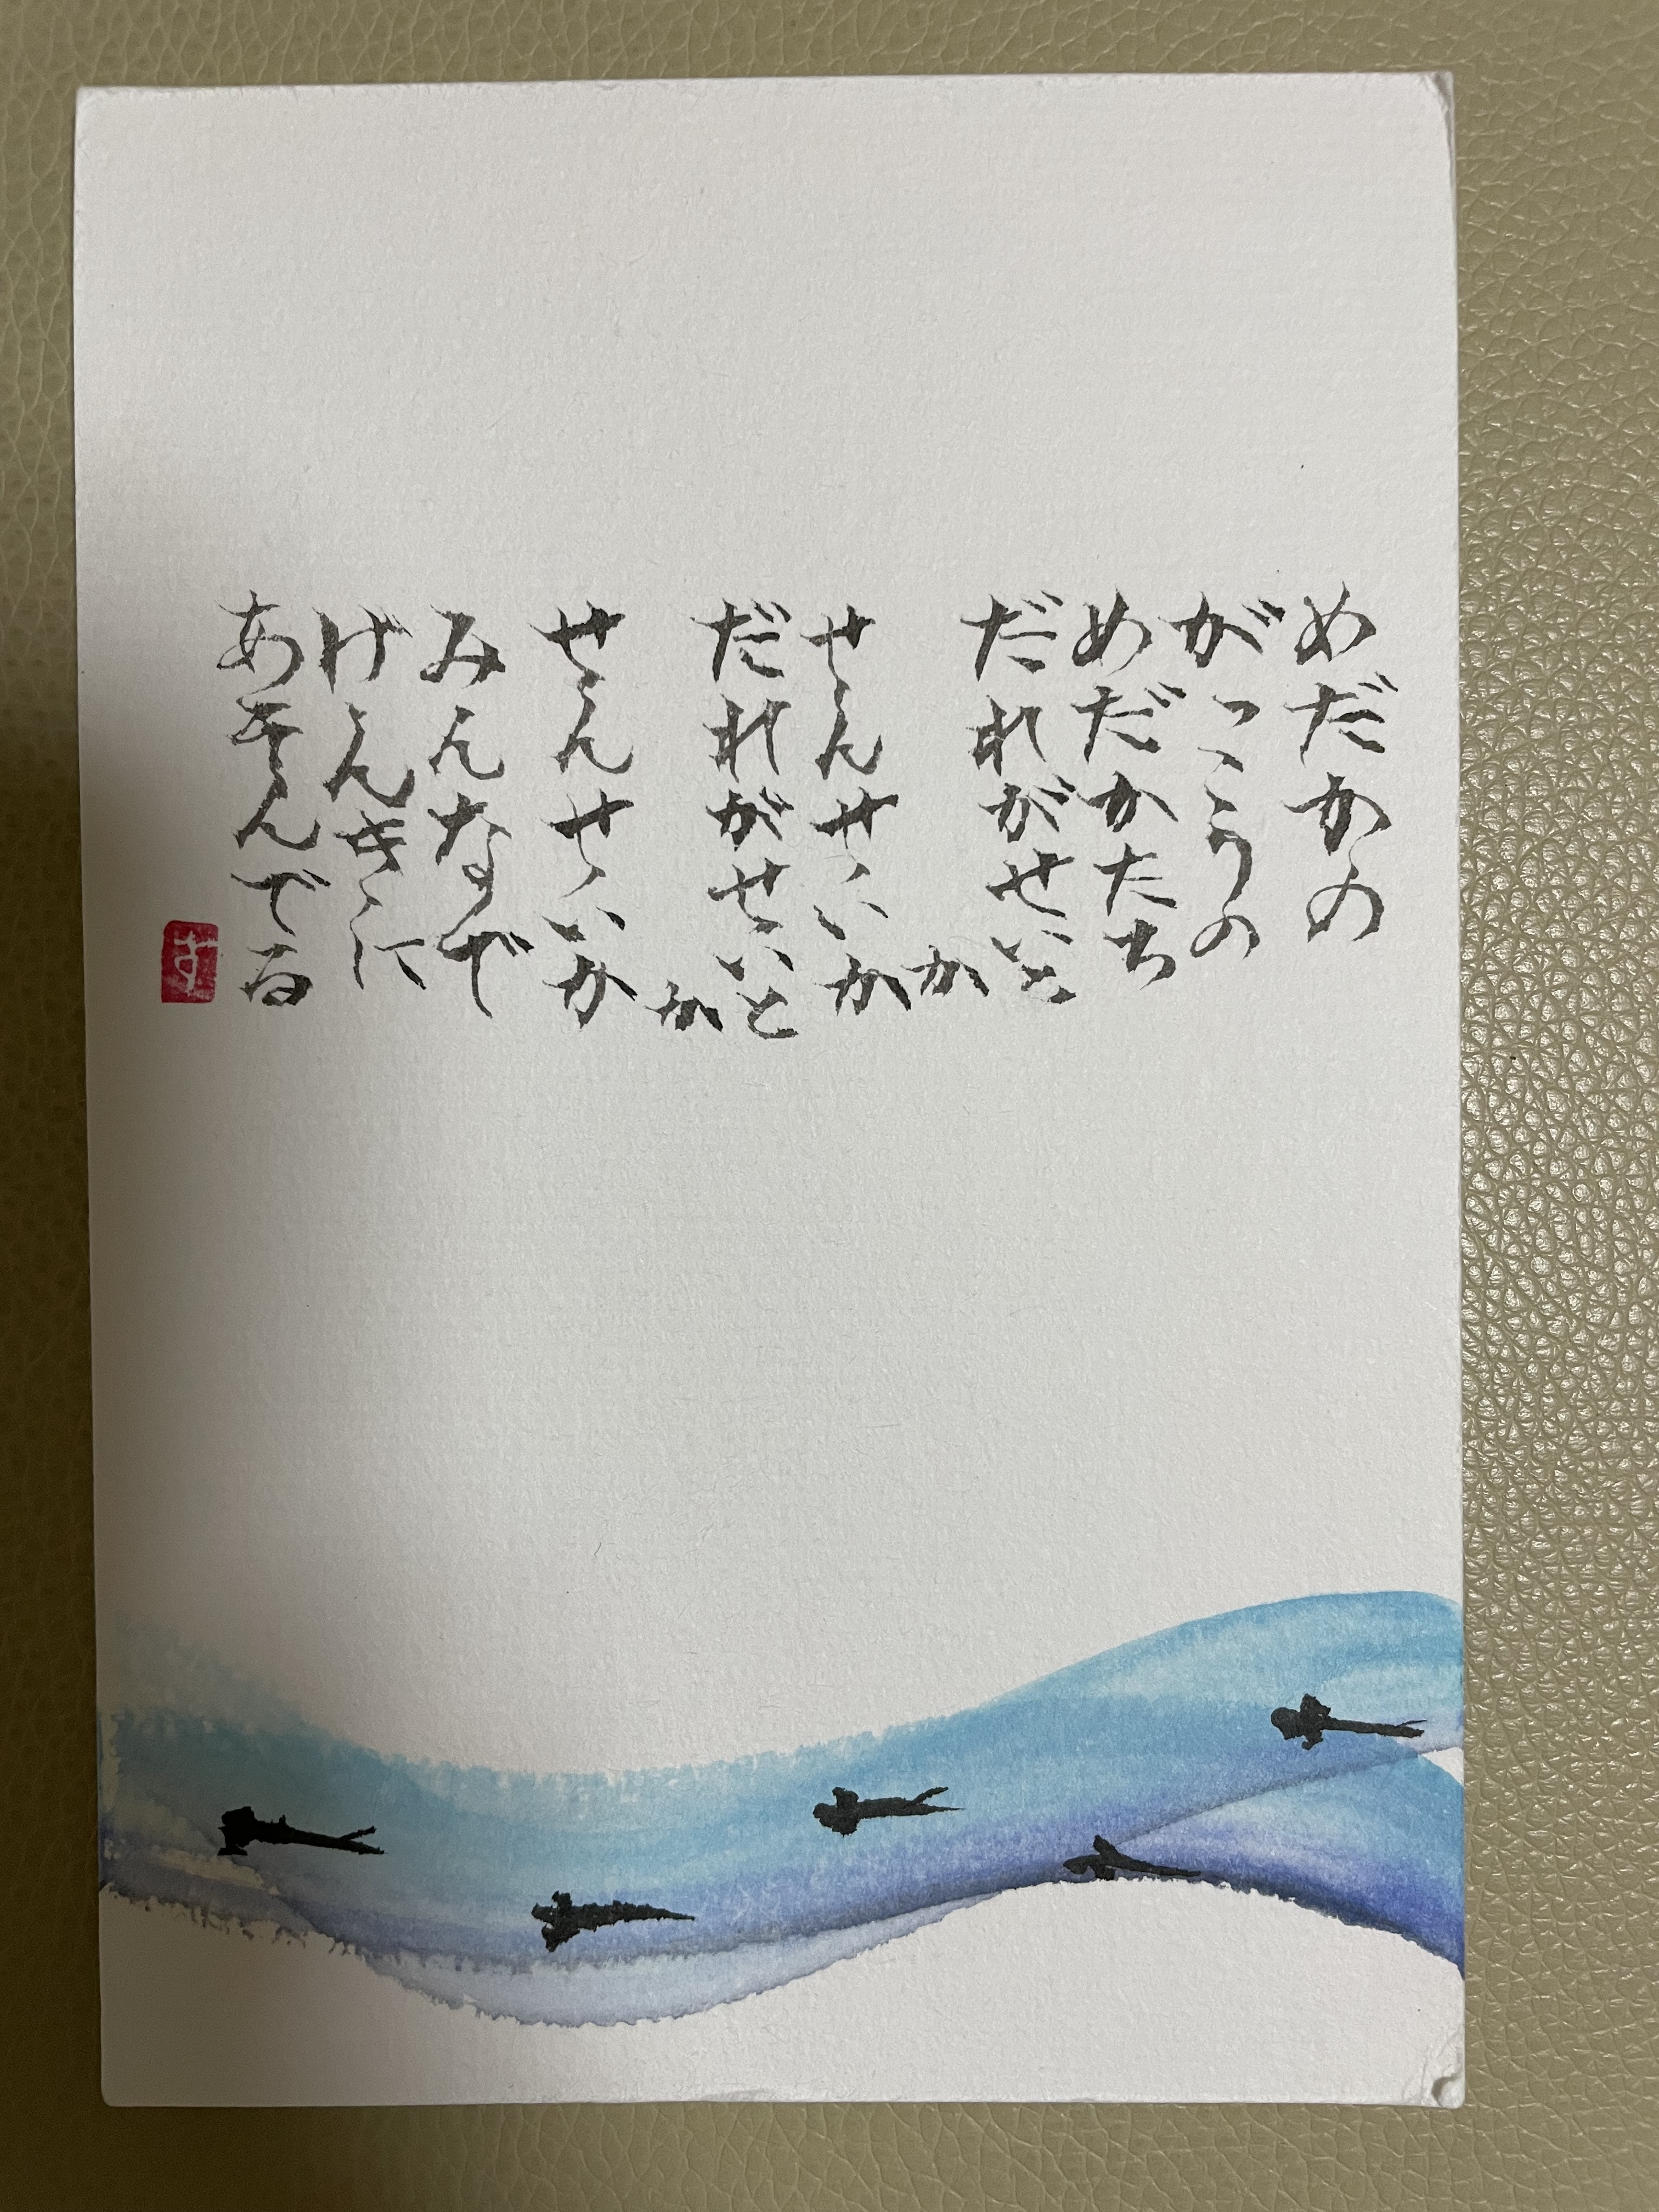 めだかの
がっこうの
めだかたち
だれがせいと
か
せんせいか
だれがせいと
か
せんせいか
みんなで
げんきに
あそんでる
す